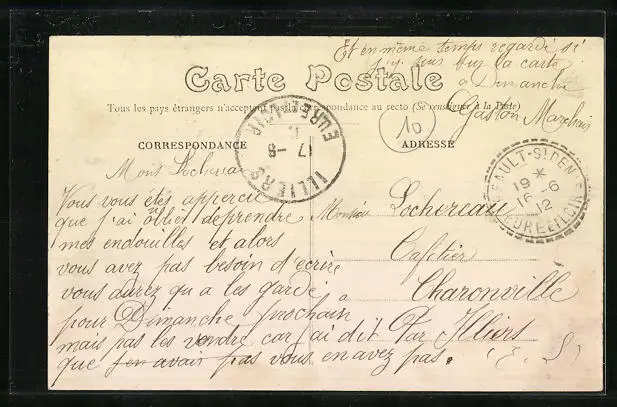 Et en même temps regardé si
j'y suis sur la carte
a Dimanche
Gaston Marchais
Carte Postale
Tous les pays étrangers n'acceptent pas la correspondance au recto (Se renseigner à la Poste)
10
CORRESPONDANCE
ADRESSE
ILLIERS
17 -8
EURE-ET-LOIR
19 *
16-6
12
EURE-ET-LOIR
Mont Lochereau
Vous vous étes apperçu
que j'ai oblier deprendre
mes endouilles et alors
vous avez pas besoin d'ecrire
vous aurez qu a les gardé
pour Dimanche prochain
mais pas les vendre car j'ai dit
que j'en avais pas vous en avez pas.
Monsieur Lochereau
Cafetier
a Charonville
Par Illiers
(E. L)